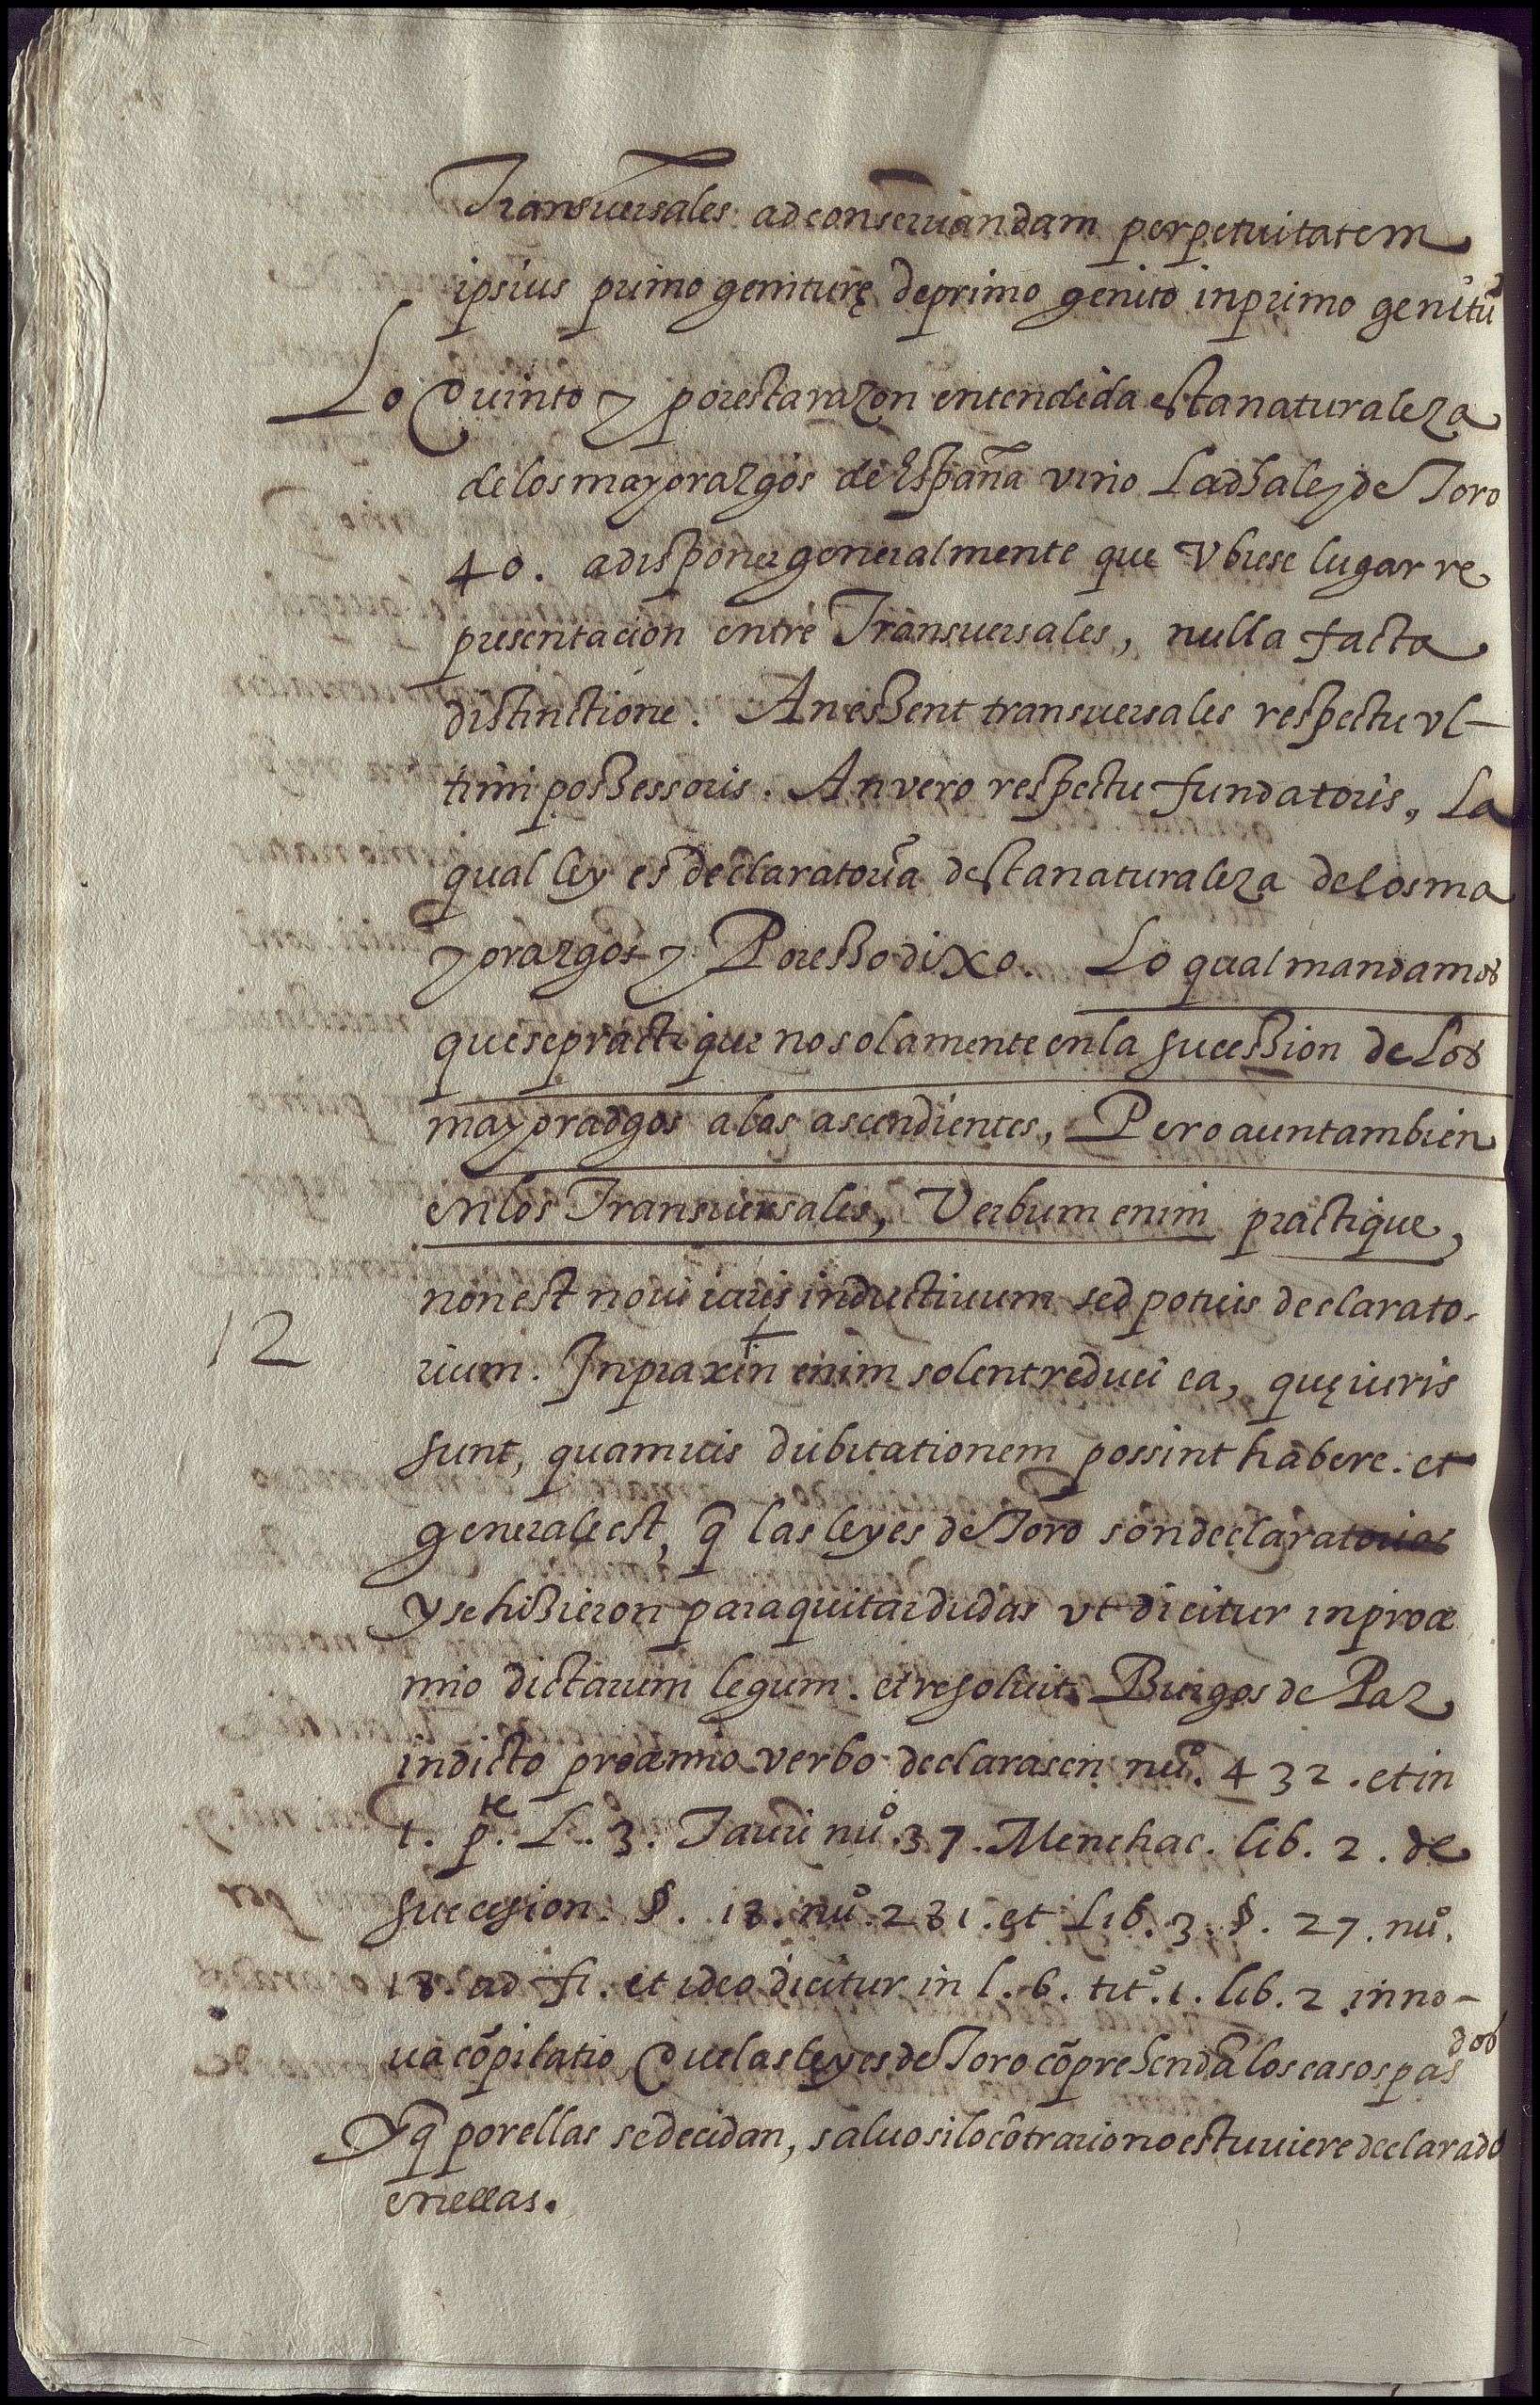 Transuersales ad conseruandam perpetuitatem
ipsius primo geniturę de primo genito in primo genitũ
Lo Quinto y por esta razon entendida esta naturaleza
de los mayorazgos de España vino la dha ley de Toro
40. a disponer generalmente que Vbiese lugar re
presentacion entre Transuersales, nulla facta
distinctione. An essent transuersales respectu vl-
timi possessoris. An vero respectu fundatoris, La
qual ley es declaratoria desta naturaleza de los ma
yorazgos y Por esso dixo. Lo qual mandamos
que se practique no solamente en la sucession de Los
mayoradgos a los ascendientes, Pero aun tambien
en los Transuersales, Verbum enim practique,
non est noui iuris inductiuum sed potius declarato-
12
rium. In praxin enim solent reduci ea, quę iuris
sunt, quamuis dubitationem possint habere. et
generale est, q̃ las leyes de Toro son declaratorias
y se hizieron para quitar dudas vt dicitur in proæ
mio dictarum legum. et resoluit Burgos de Paz
in dicto proæmio verbo declarasen nu.º 432. et in
1. p.te L. 3. Tauri nu.º 37. Menchac. lib. 2. de
succesion. §. 18. nu.º 281. et Lib. 3. §. 27. nu.º
18. ad fi. et ideo dicitur in l. 6. tit.º 1. lib. 2 in no-
ua cõpilatio Que las leyes de Toro cõprehendã los casos pasdos
Y q̃ por ellas se decidan, saluo si lo cõtrario no estuuiere declarado
en ellas.